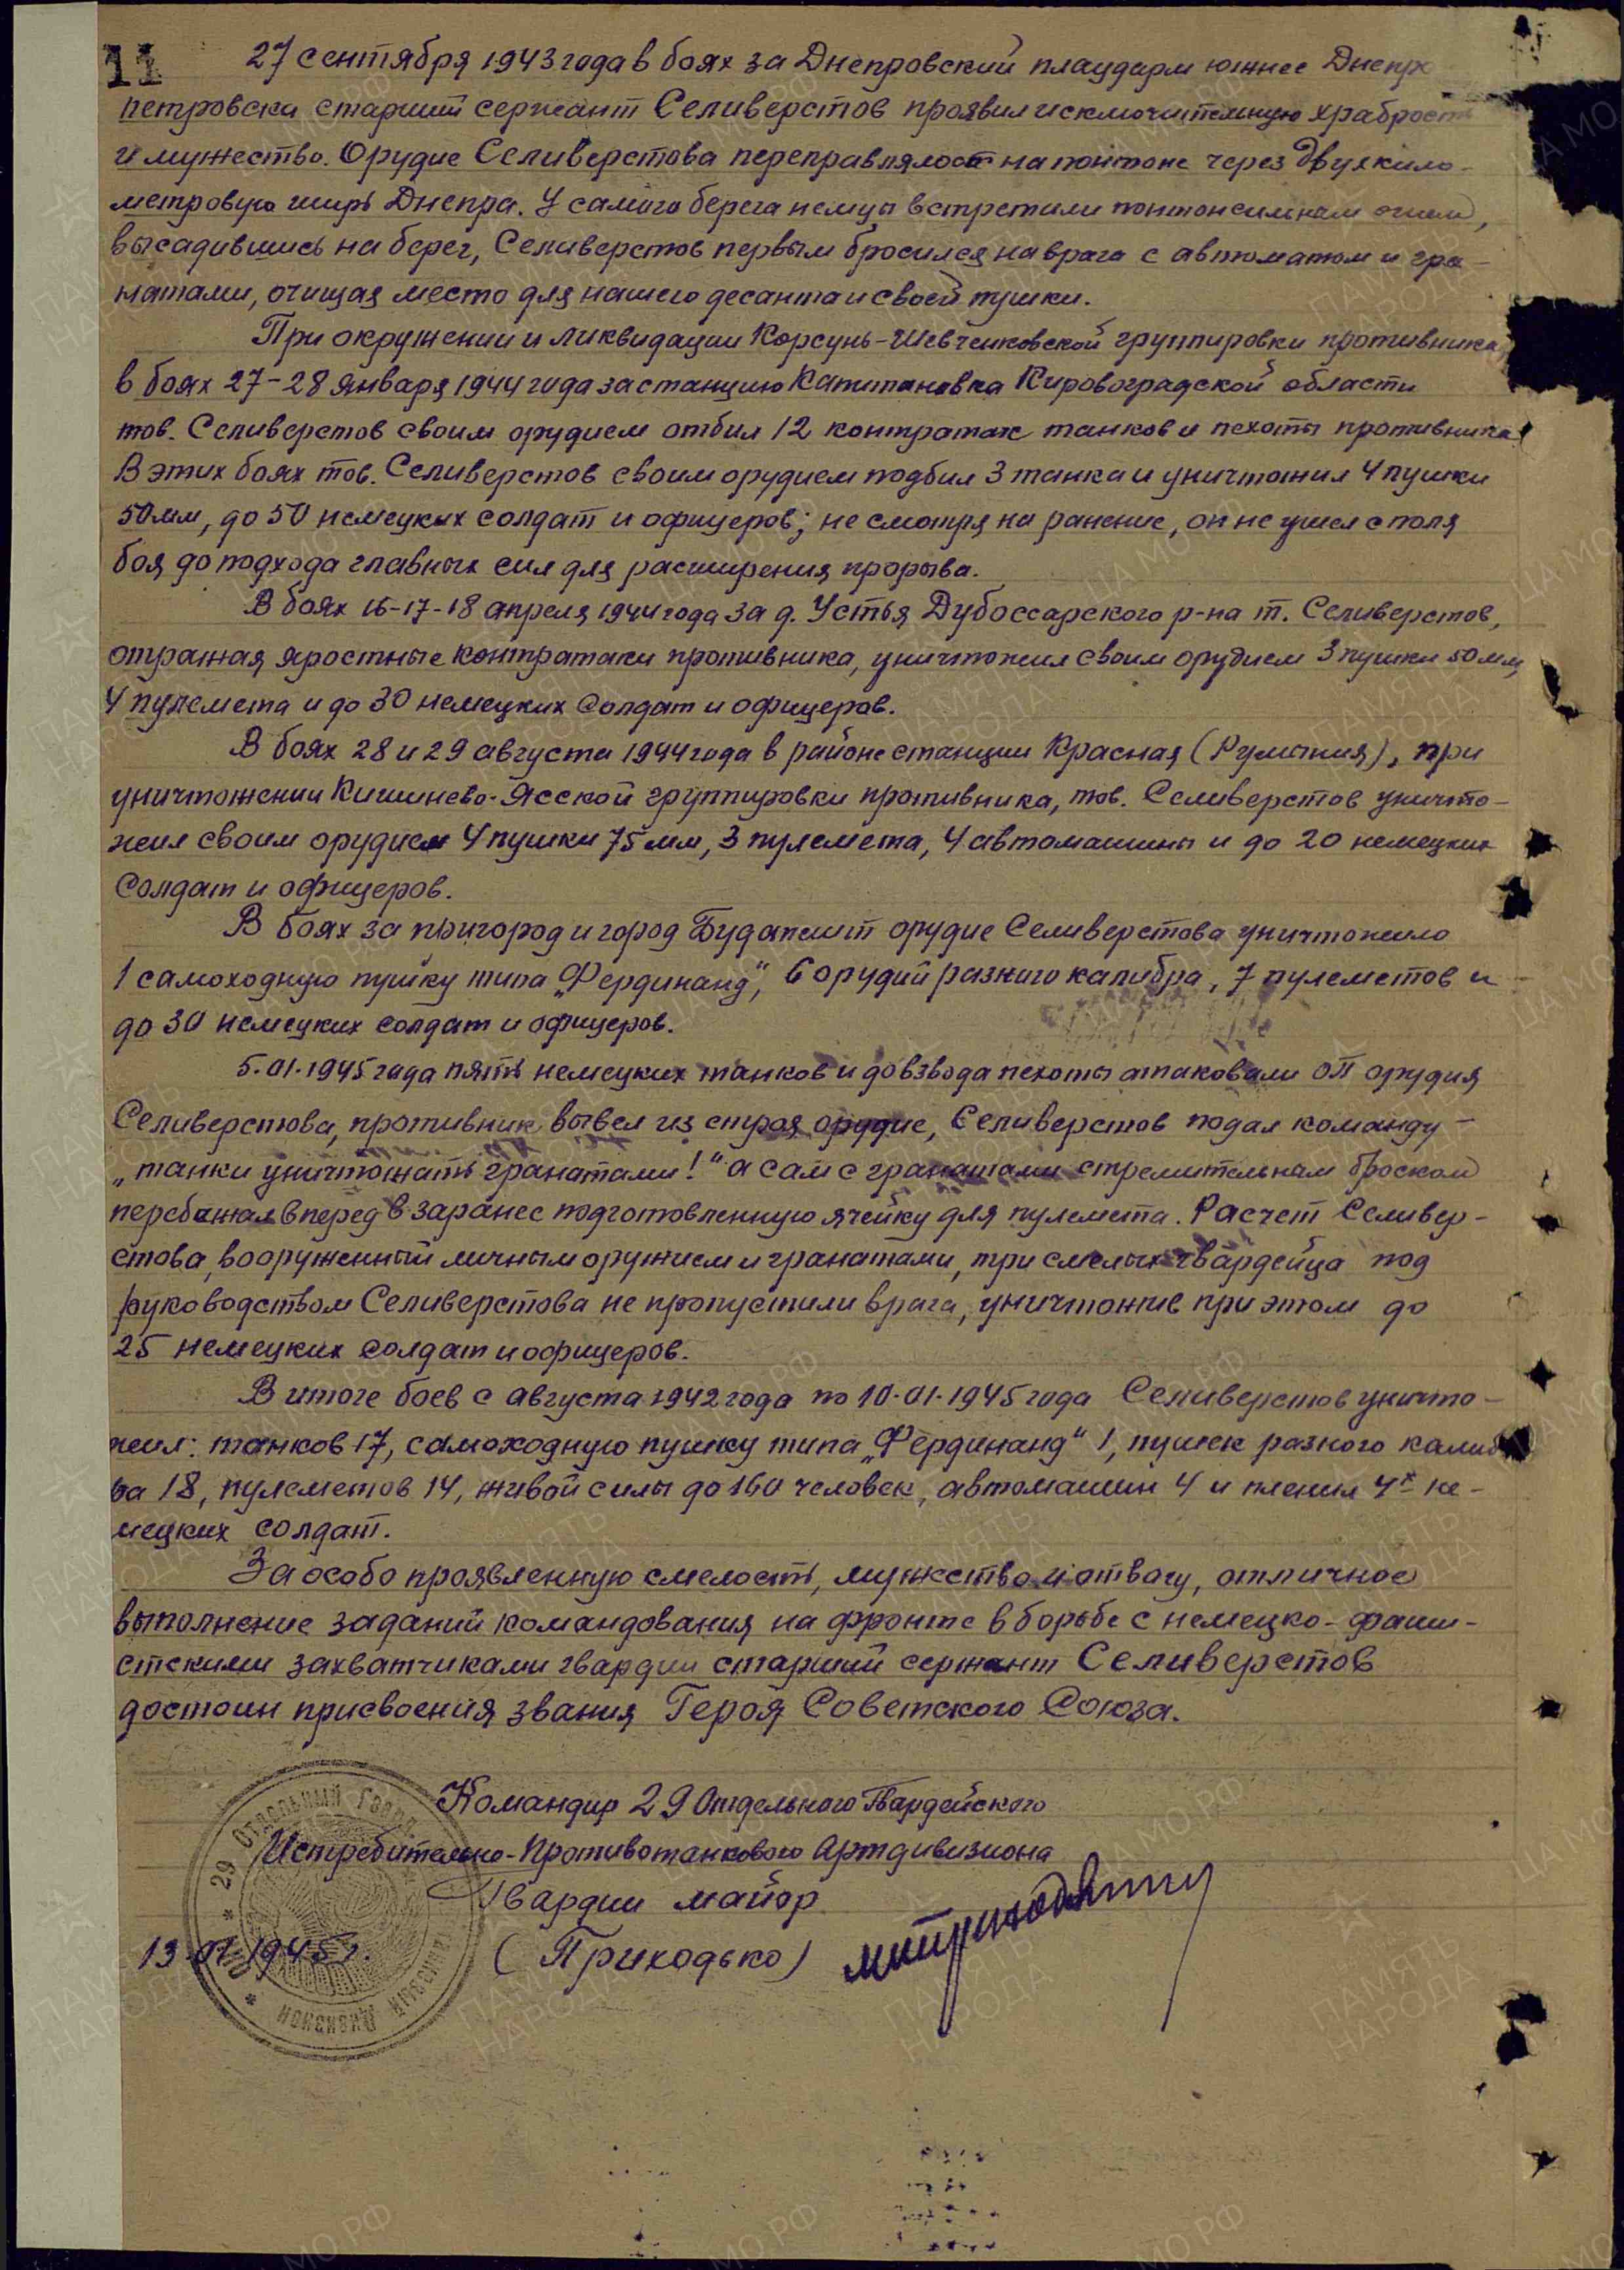 11
27 сентября 1943 года в боях за Днепровский плацдарм южнее Днепро
петровска старший сержант Селиверстов проявил исключительную храбрость
и мужество. Орудие Селиверстова переправлялось на понтоне через двухкило-
метровую ширь Днепра. У самого берега немцы встретили понтон сильным огнем,
высадившись на берег, Селиверстов первым бросился на врага с автоматом и гра-
натами, очищая место для нашего десанта и своей пушки.
При окружении и ликвидации Корсунь-Шевченковской группировки противника,
в боях 27-28 января 1944 года за станцию Капитановка Кировоградской области
тов. Селиверстов своим орудием отбил 12 контратак танков и пехоты противника.
В этих боях тов. Селиверстов своим орудием подбил 3 танка и уничтожил 4 пушки
50мм, до 50 немецких солдат и офицеров; не смотря на ранение, он не ушел с поля
боя до подхода главных сил для расширения прорыва.
В боях 16-17-18 апреля 1944 года за д. Устья Дубоссарского р-на т. Селиверстов,
отражая яростные контратаки противника, уничтожил своим орудием 3 пушки 50мм,
4 пулемета и до 30 немецких солдат и офицеров.
В боях 28 и 29 августа 1944 года в районе станции Красная (Румыния), при
уничтожении Кишинево-Ясской группировки противника, тов. Селиверстов уничто-
жил своим орудием 4 пушки 75мм, 3 пулемета, 4 автомашины и до 20 немецких
солдат и офицеров.
В боях за пригород и город Будапешт орудие Селиверстова уничтожило
1 самоходную пушку типа „Фердинанд", 6 орудий разного калибра, 7 пулеметов и
до 30 немецких солдат и офицеров.
5.01.1945 года пять немецких танков и до взвода пехоты атаковали ОП орудия
Селиверстова, противник вывел из строя орудие, Селиверстов подал команду -
„танки уничтожать гранатами!" а сам с гранатами стремительным броском
перебежал вперед в заранее подготовленную ячейку для пулемета. Расчет Селивер-
стова, вооруженный личным оружием и гранатами, три смелых гвардейца под
руководством Селиверстова не пропустили врага, уничтожив при этом до
25 немецких солдат и офицеров.
В итоге боев с августа 1942 года по 10.01.1945 года Селиверстов уничто-
жил: танков 17, самоходную пушку типа „Фердинанд" 1, пушек разного калиб
ра 18, пулеметов 14, живой силы до 160 человек, автомашин 4 и пленил 4х не-
мецких солдат.
За особо проявленную смелость, мужество и отвагу, отличное
выполнение заданий командования на фронте в борьбе с немецко-фаши-
стскими захватчиками гвардии старший сержант Селиверстов
достоин присвоения звания Героя Советского Союза.
Командир 29 Отдельного Гвардейского
Истребительно-Противотанкового Артдивизиона
Гвардии майор
(Приходько)
13.01.1945г.
29 Отдельный Гвард
Дивизион
ПАМЯТЬ НАРОДА
ЦА МО РФ